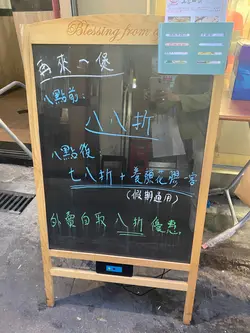 Blessing from
再來一煲
八點前:
八八折
八點後
七八折+
(假期適用)
外賣自取 八折 優惠